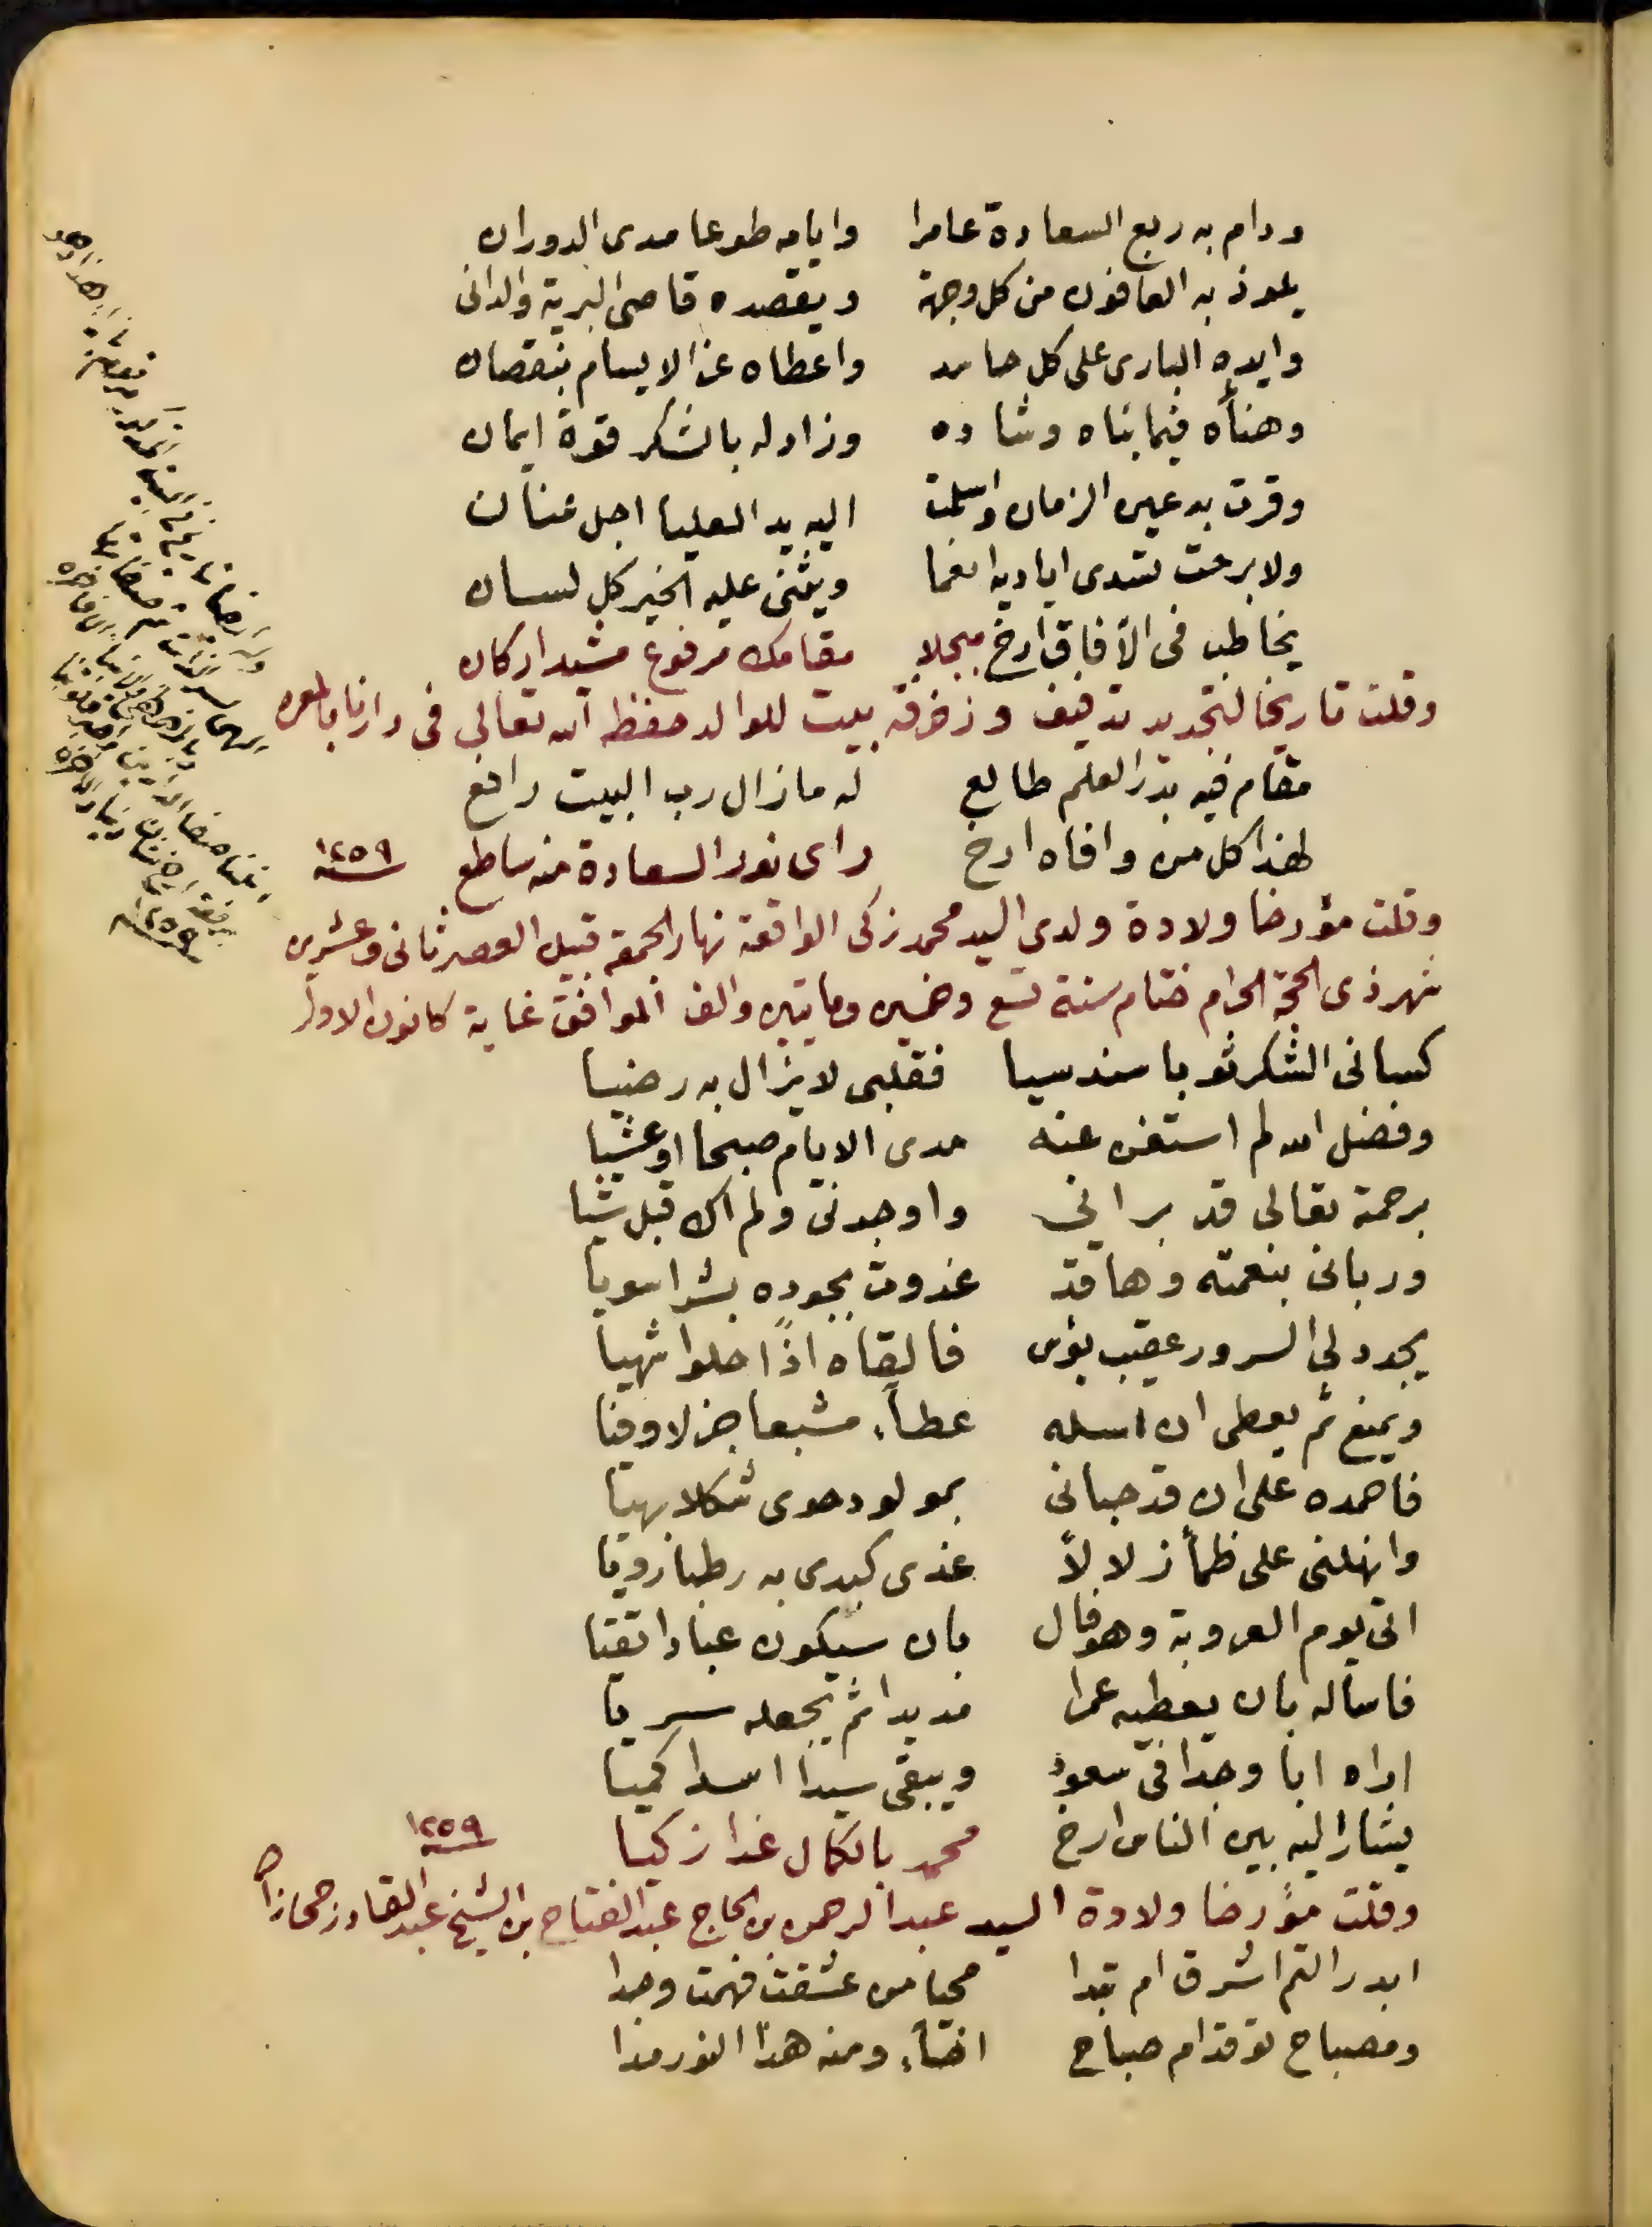 ودام به ربع السعادة عامرا وايامه طوعا مدى الدوران
يلوذ به العافون من كل وجهة ويقصده قاصى البرية والدانى
وايده البارى على كل حاسد واعطاه عزا لا يسام بنقصان
وهنأه فيما بناه وشاده وزاد له بالشكر قوة ايمان
وقرت به عين الزمان واسلمت اليه يد العليا اجل عنان
ولا برحت تسدى اياديه انعما ويثنى عليه الخير كل لسان
يخاطب فى الآفاق ارخ مبجلا مقامك مرفوع مشيد اركان
وقلت تاريخا لتجديد تدفيف وزخرفة بيت للوالد حفظه الله تعالى فى دارنا بالمعره
مقام فيه بدر العلم طالع له مازال رب البيت رافع
لهذا كل من وافاه ارخ راى نور السعادة منه ساطع سنة ١٢٥٩
وقلت مؤرخا ولادة ولدي السيد محمد زكى الواقعة نهار الجمعة قبيل العصر ثانى وعشرين
شهر ذى الحجة الحرام ختام سنة تسع وخمسين وماتين والف الموافق غاية كانون الاول
كسانى الشكر ثوبا سندسيا فقلبى لا يزال به رضيا
وفضل الله لم استغن عنه مدى الايام صبحا او عشيا
برحمة تعالى قد برانى واوجدنى ولم اك قبل شيا
وربانى بنعمته وها قد غدوت بجوده بشرا سويا
يجدد لى السرور عقيب بؤس فالقاه اذًا حلوا شهيا
ويمنع ثم يعطى ان اسله عطاء مشبعا جزلا وفيا
فاحمده على ان قد حبانى بمولود حوى شكلا بهيا
وانهلنى على ظمأ زلالاً غدى كبدى به رطبا رويا
اتى يوم العروبة وهو فال بان سيكون عبادا تقيا
فاساله بان يعطيه عمرا مديدا ثم يجعله سريا
اراه ابا وجدا فى سعود ويبقى سيدا اسدا كميا
يشار اليه بين الناس ارخ محمد بالكمال غدا زكيا ١٢٥٩
وقلت مؤرخا ولادة السيد عبد الرحمن بن الحاج عبد الفتاح بن الشيخ عبد القادر حجازى
ابدر التم اشرق ام تبدا محيا من عشقت فهمت وجدا
ومصباح توقد ام صباح اضاء ومنه هذا النور مدا
١٢٥٩